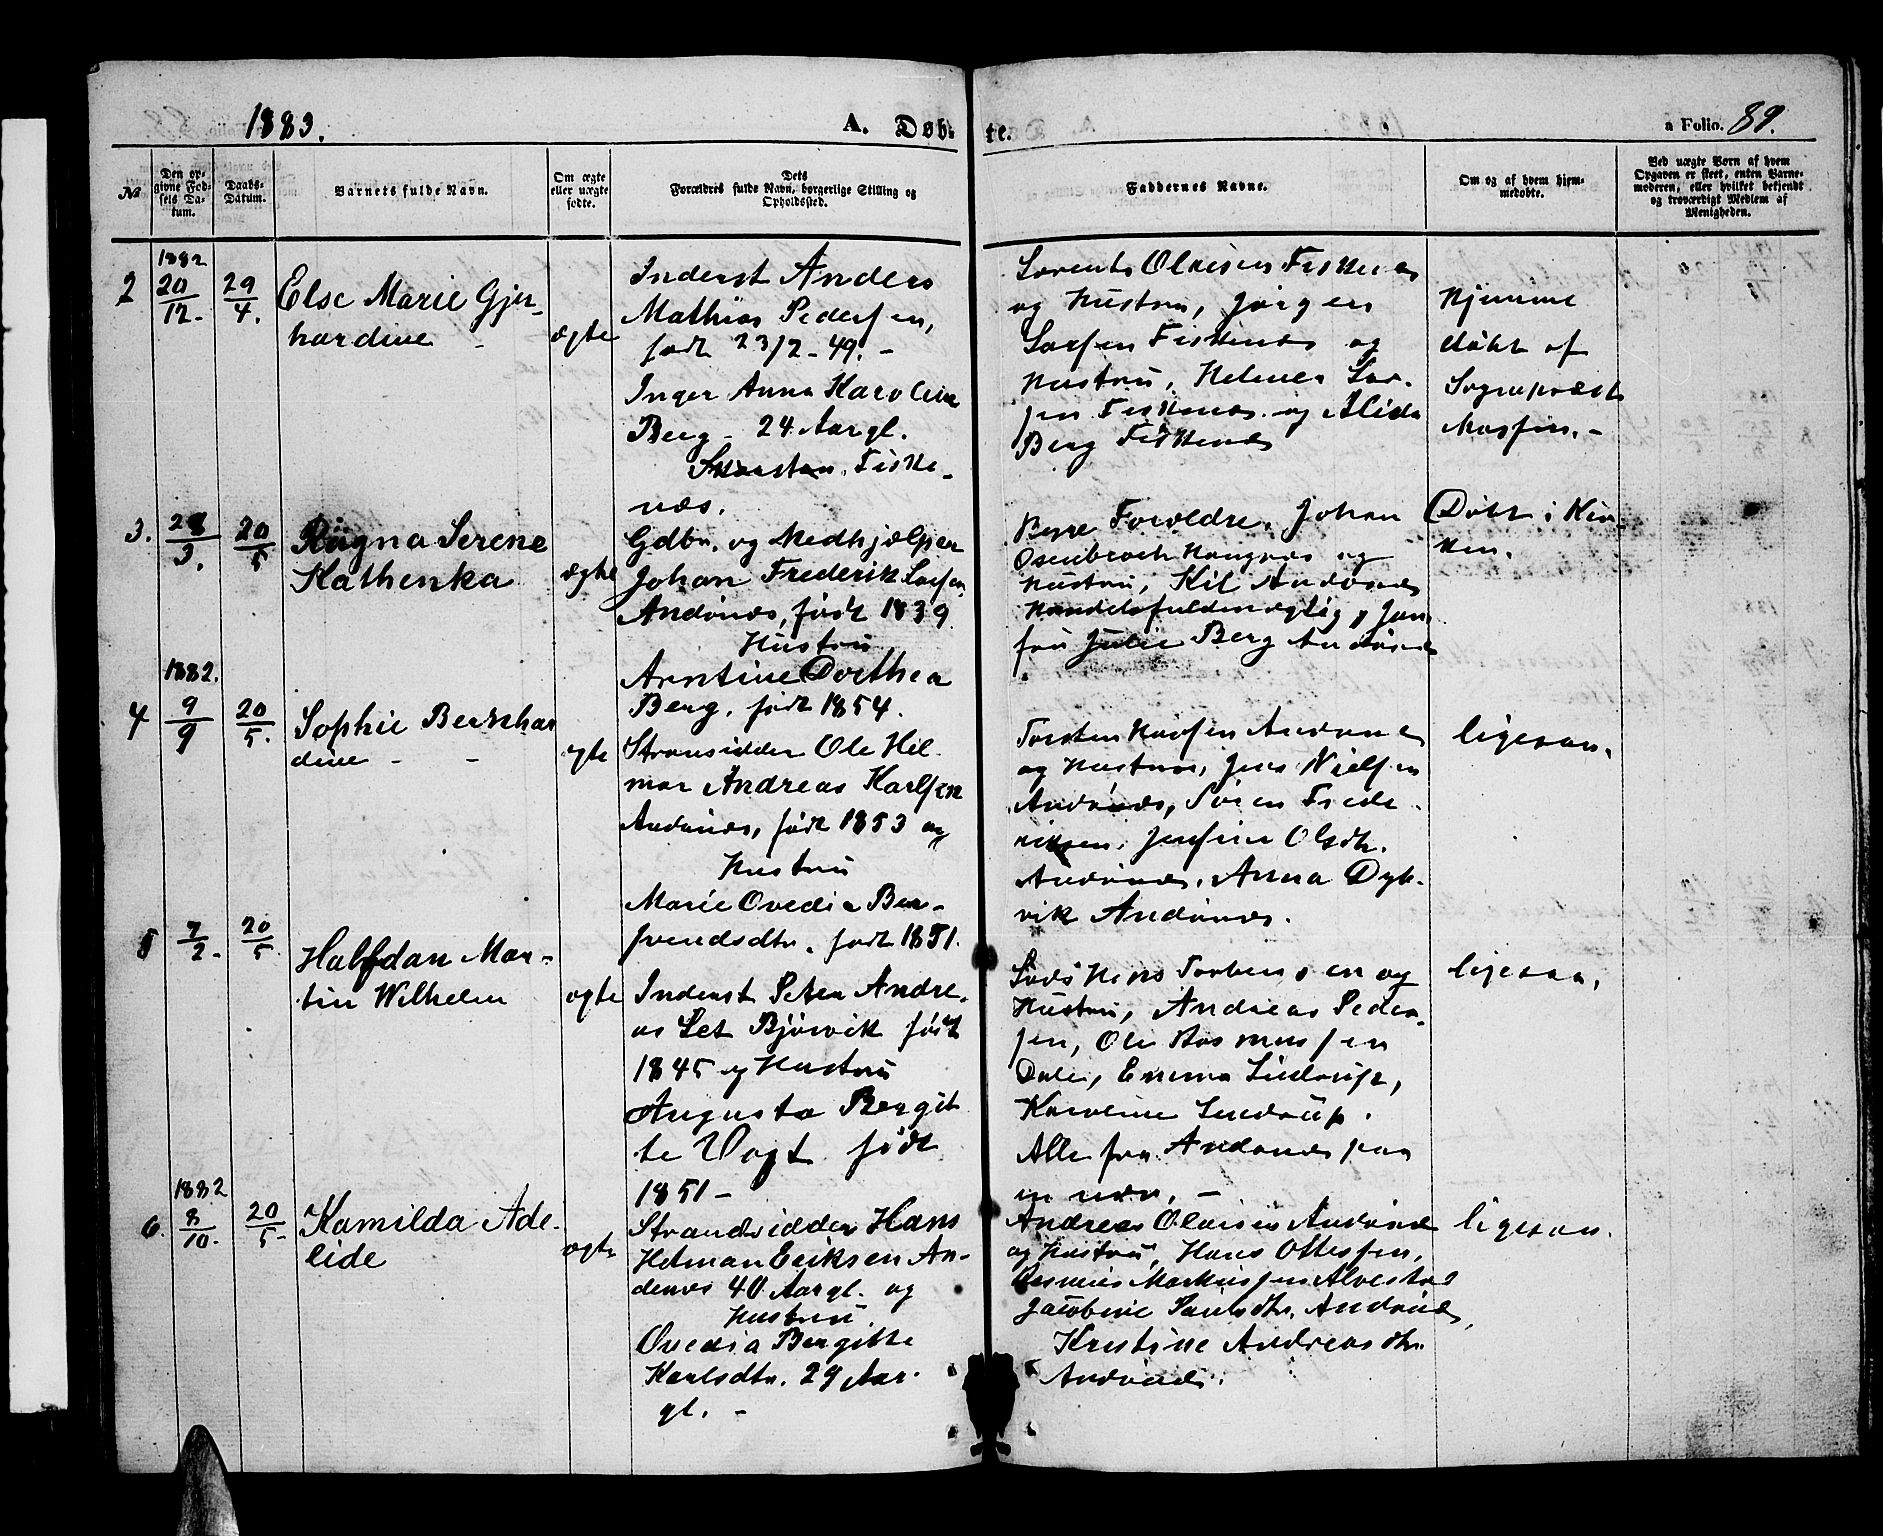 1883.
A. Døb-
te.
a Folio. 89.
№
Den op-
givne Fød-
sels Da-
tum.
Daabs-
Datum.
Barnets fulde Navn.
Om ægte
eller uægte
fødte.
Dets
Forældres fulde Navn, borgerlige Stilling og
Opholdssted.
Faddernes Navne.
Om og af hvem hjem-
medøbte.
Ved uægte Børn af hvem
Opgaven er skeet, enten Barne-
moderen, eller hvilket bekjendt
og troværdigt Medlem af
Menigheden.
2
1882
20/12.
29/4.
Else Marie Gjer-
hardine
ægte
Inderst Anders
Mathias Pedersen,
født 23/2-49.-
Inger Anna Karoline
Berg - 24 Aar gl.
Fiske-
næs.
Lorents Olaisen Fiskenæs
og Hustru, Jørgen
Larsen Fiskenæs og
Hustru, Helmer Lar-
sen Fiskenæs og Alida
Berg Fiskenæs
Hjemme
døbt af
Sogneprest
3.
28/3.
20/5
Ragna Serene
Kathenka
ægte
Gdbr. og Medhjælper
Johan Frederik Larsen
Andønæs, født 1839
Hustru
Arntine Dorthea
Berg, født 1854.
Forældre, Johan
Osenbroch Haugnæs og
Hustru, Andønæs
Handelsfuldmægtig, Jom-
fru Julie Berg Andønæs
Døbt i Kir-
ken.
4
1882.
9/9
20/5.
Sophie Bernhar
dine - -
ægte
Stransidder Ole Hil-
mar Andreas Karlsen
Andønæs, født 1853 og
Hustru
Marie Ovedia Ber-
født 1851.
Torsten Andønæs
og Hustru, Jens Nielsen
Andønæs, Søren Frede-
riksen, Jensine Olsdtr.
Andønæs, Anna Dyb-
vik Andønæs.
ligesaa,
5
7/2.
20/5
Halfdan Mar-
tin Wilhelm
ægte
Inderst Peter Andre-
as Set Bjørvik født
1845 og Hustru
Augusta Bergit
te Vogt født
1851-
Lods Torbensen og
Hustru, Andreas Peder-
sen, Ole Rasmussen
Dale, Emma Lindrup,
Karoline Lindrup.
Alle fra Andønæs paa
en nær, -
ligesaa,
6.
1882
8/10.
20/5.
Kamilda Ade-
lide
ægte
Strandsidder Hans
Hetman Eriksen An-
denæs 40 Aar gl. og
Hustru
Ovedia Bergitte
Karlsdtr. 29 Aar
gl. -
Andreas Olaisen Andønæs
og Hustru, Hans Ottesen,
Rasmus Markussen Alvestad
Jacobine Andønæs,
Kristine Andreasdtr.
Andønæs.
ligesaa.